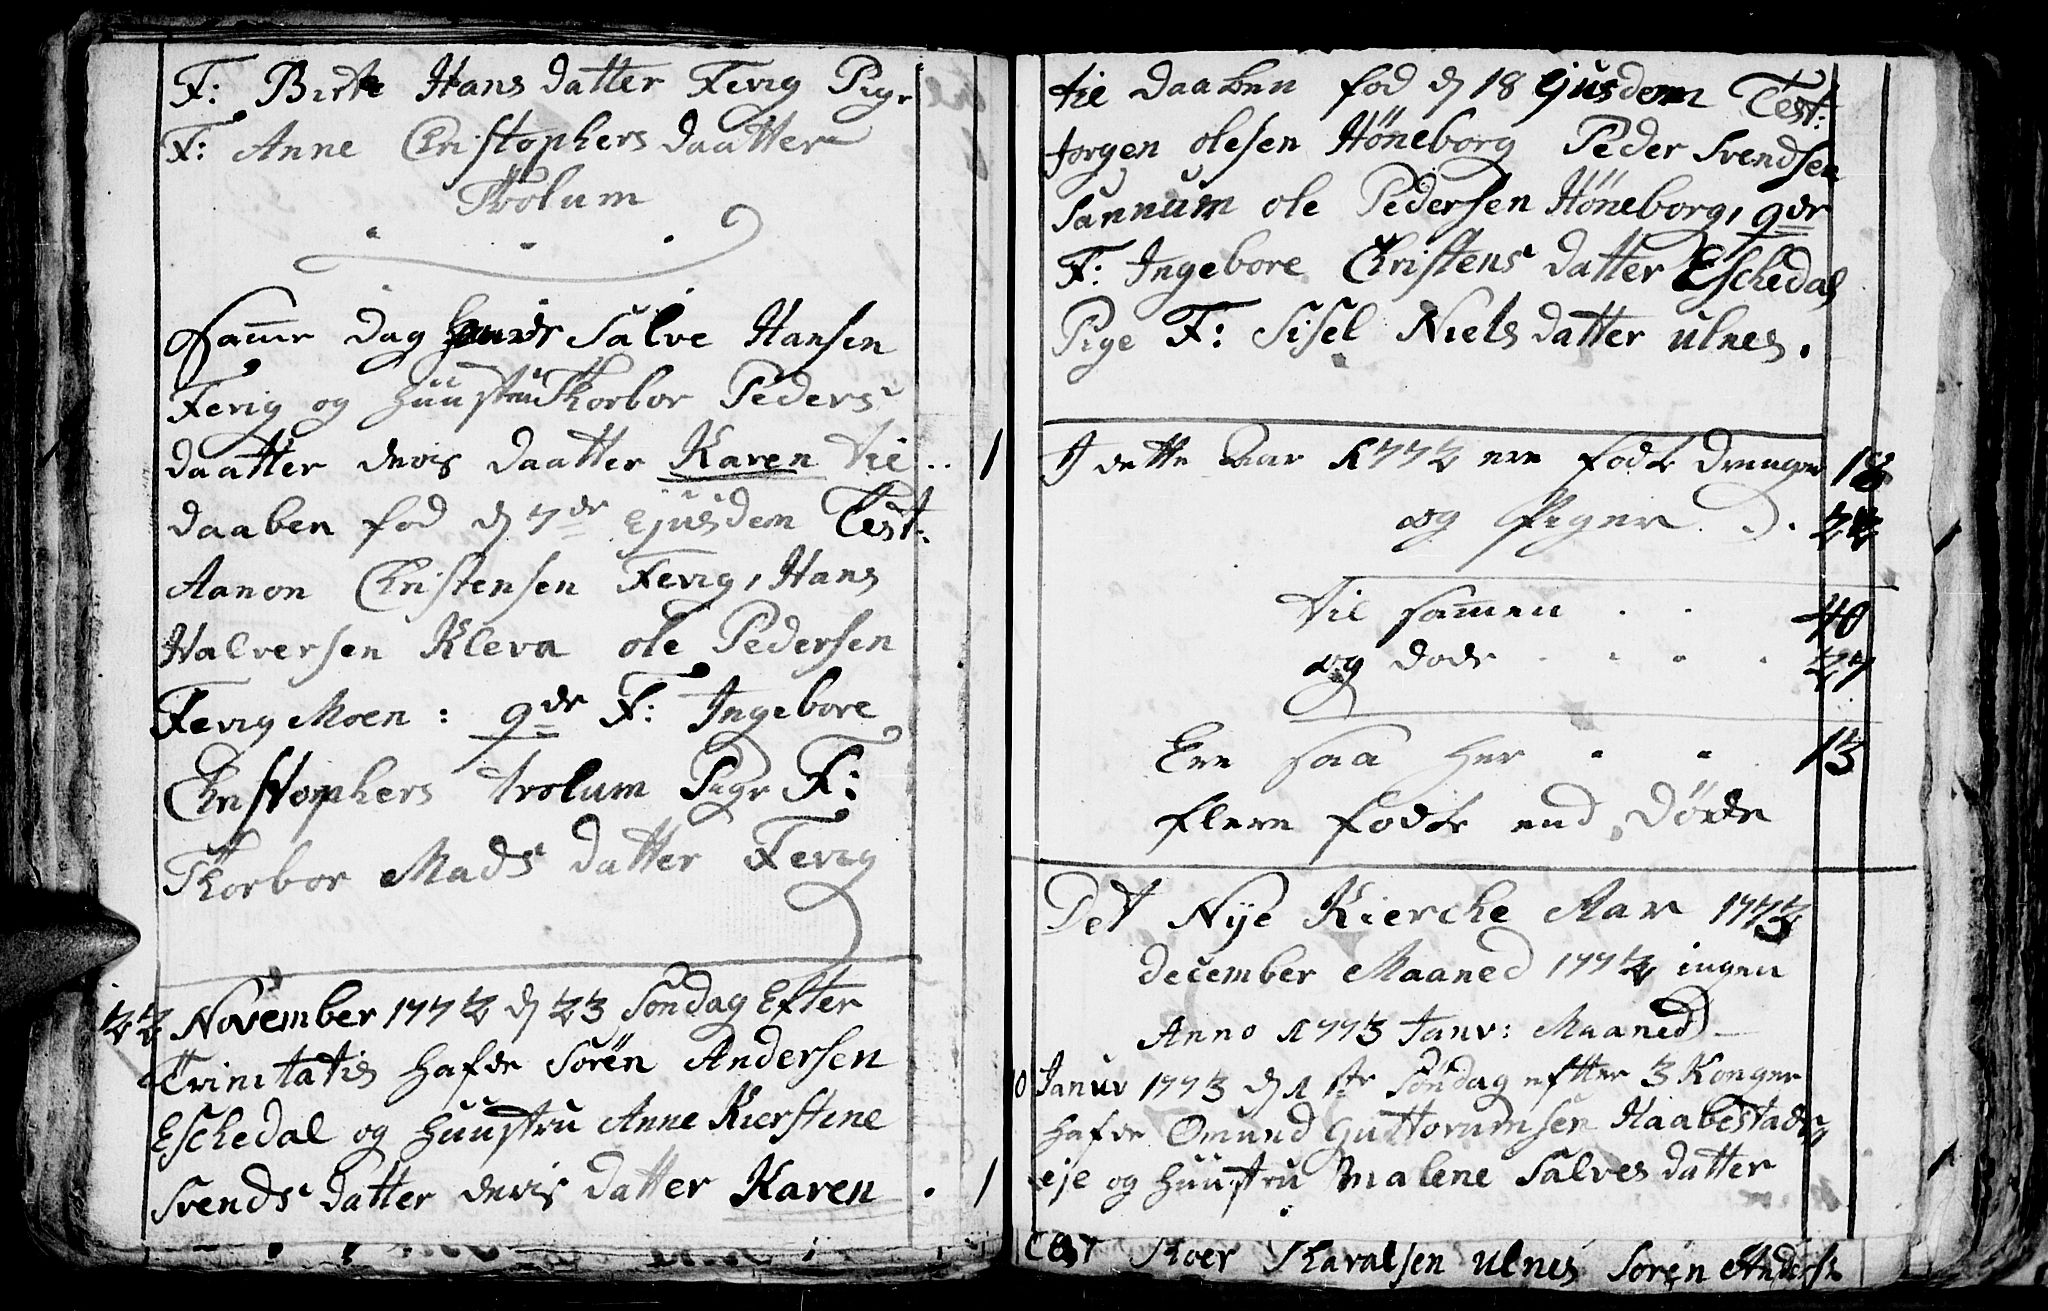 F: Birte Hans datter Fevig Pige
F: Anne Christophers daatter
Trolum
Samme Dag hafde Salve Hansen
Fevig og Huustru Thorbor Peders
daatter deris daatter Karen til . . 1
daaben fød d 7de Ejusdem Test:
Aanon Christensen Fevig, Hans
Halversen Kleva ole Pedersen
Fevig Moen : qde F: Ingebore
Christophers trolum Pige F:
Thorbor Mads datter Fevig
22 November 1772 d 23 Søndag Efter
Trinitatis hafde Sørën Andersen
Eschedal og Huustru Anne Kierstine
Svends datter deris datter Karen . 1
til daaben fød d 18 Ejusdem Test:
Jørgen olesen Höneborg Peder Svendsen
Sannum ole Pedersen Höneborg, qde
F: Ingebore Christens datter Eschedal
Pige F: Sisel Niels datter ulnes.
I dette Aar 1772 ere fødte Drenge 18
og Piger . . 22
til samen . . 40
og døde . . . . 27
Ere saa her . . 13
flere fødte end Döde
Det Nye Kierche Aar 1773
december Maaned 1772 ingen
Anno 1773 Janv: Maaned
10 Januv 1773 d 1ste Söndag efter 3 Konger
hafde Omund Guttorumsen Haabestad
eje og Huustru Malene Salves datter
Test Roer Tharalsen ulnes Sørën Anders